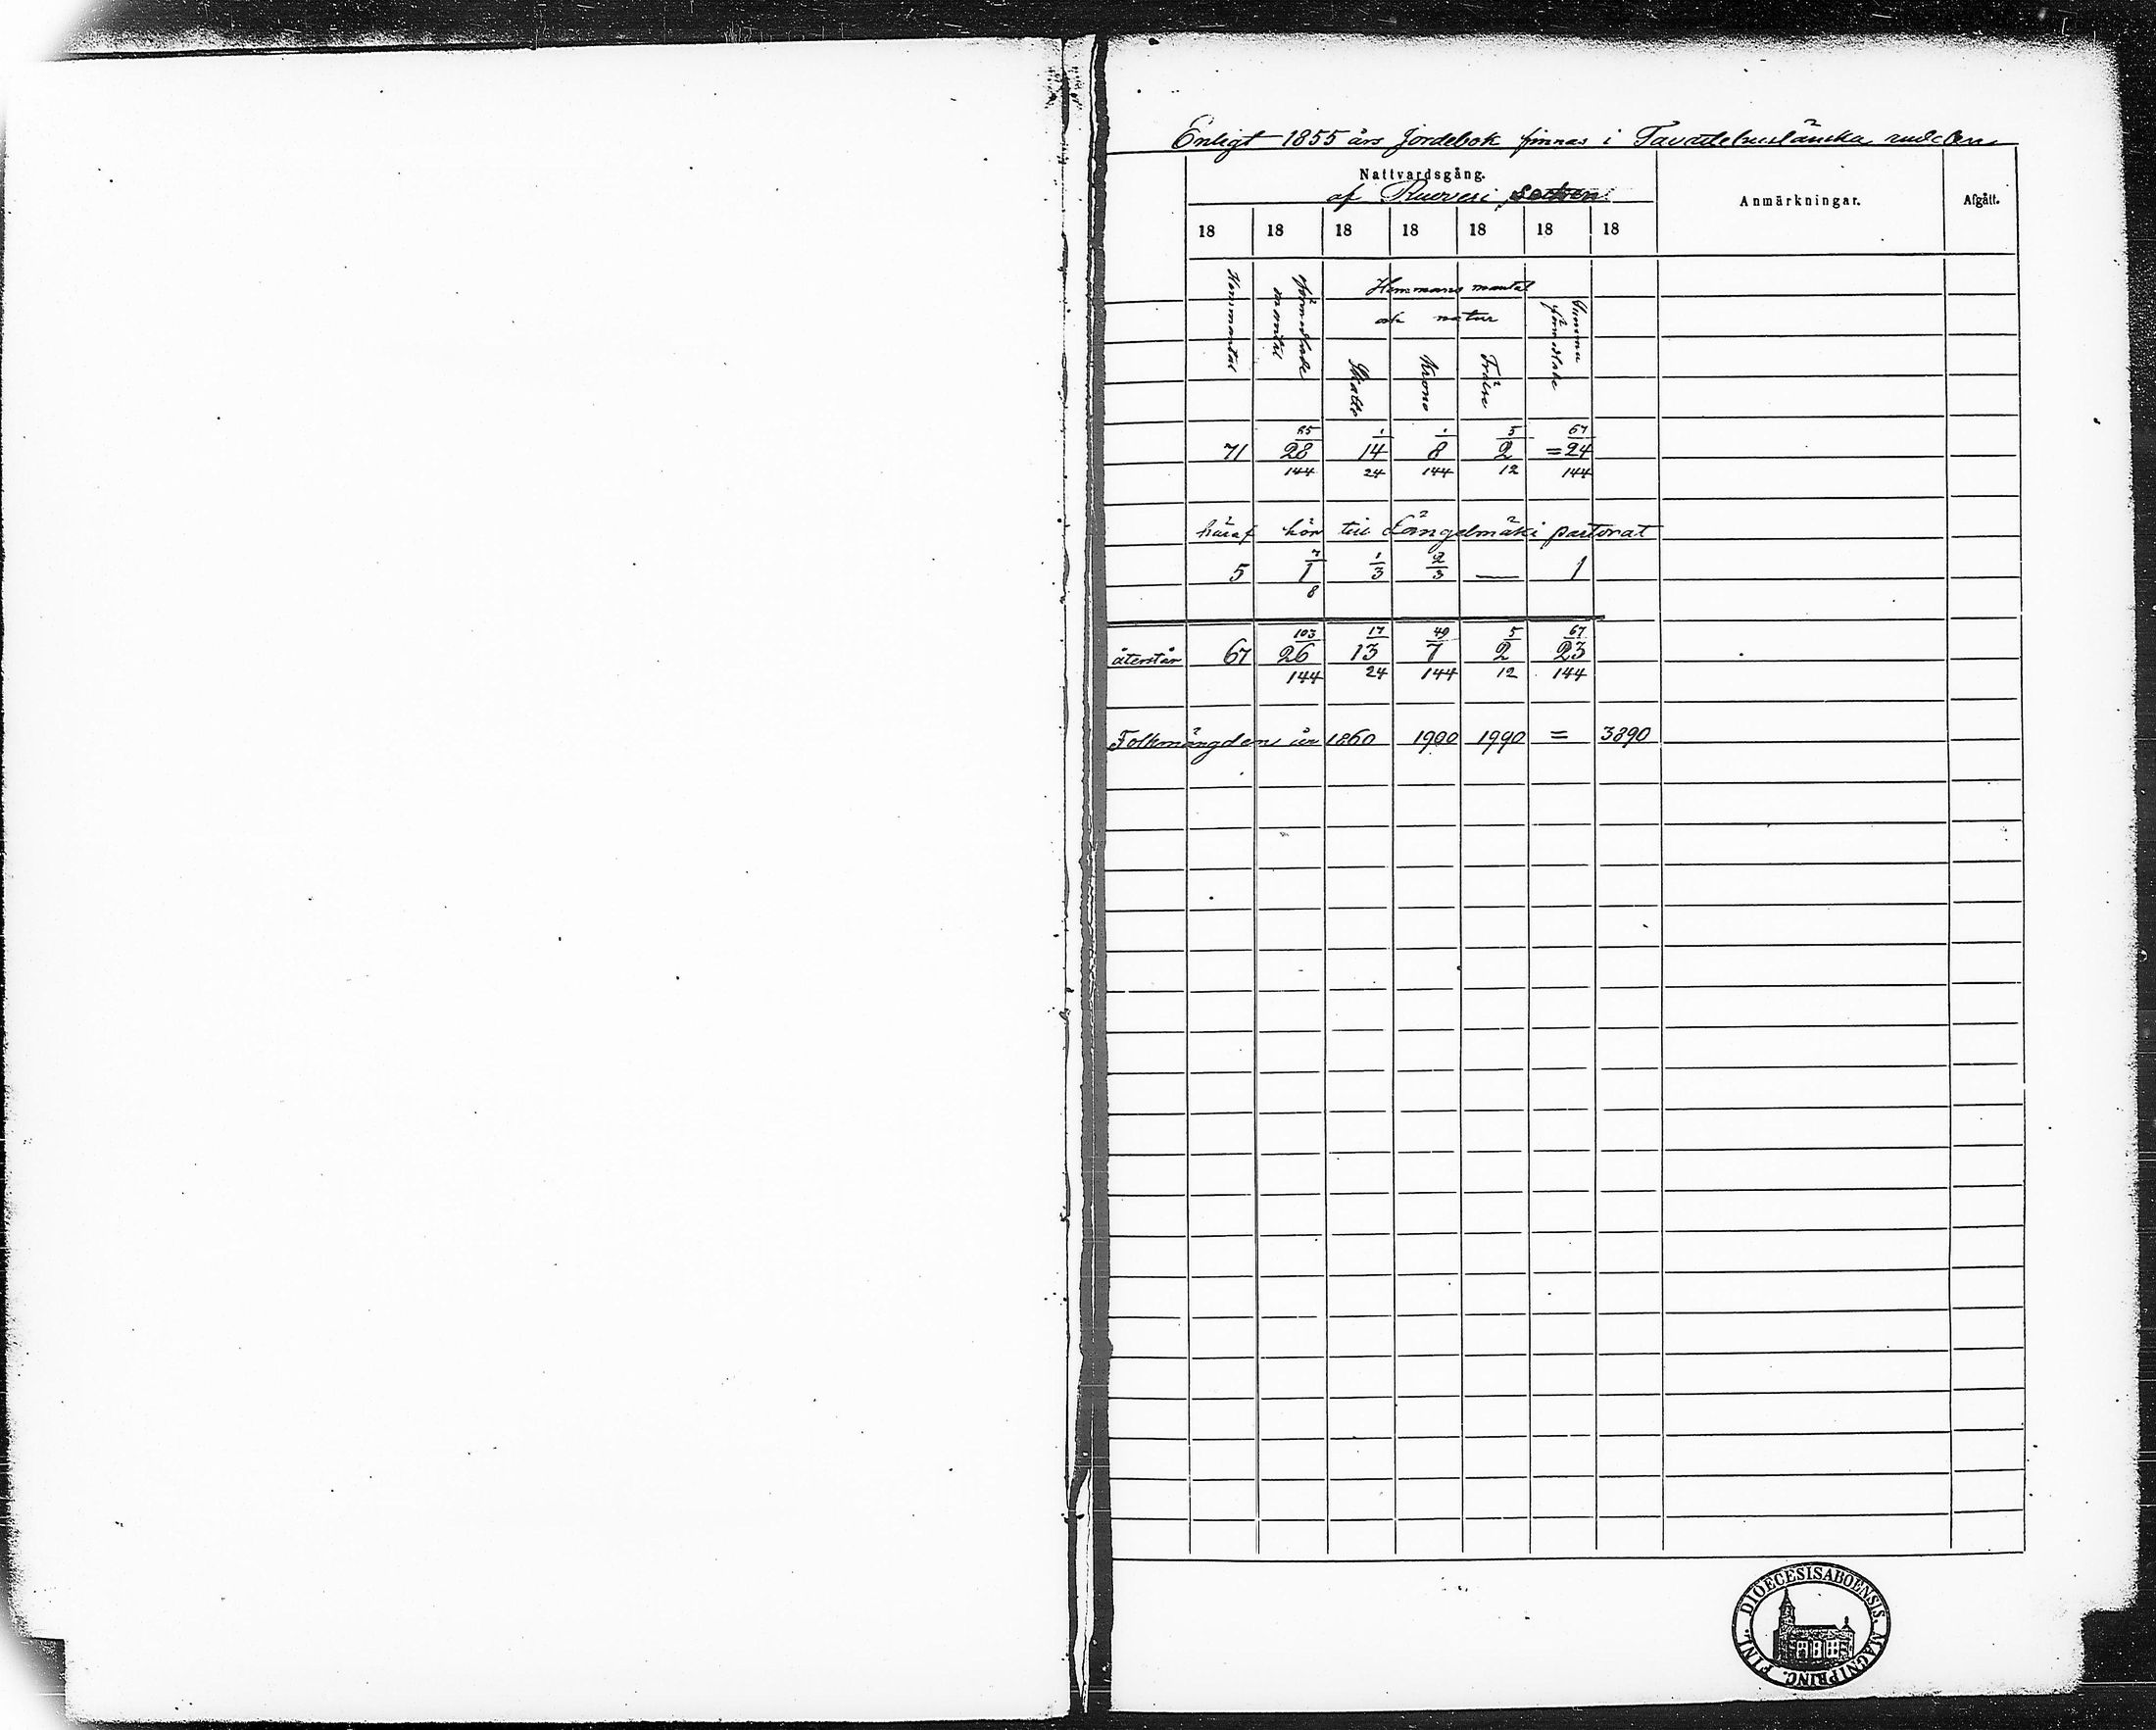 Enligt 1855 års Jordebok finnas i Tavastehuslänska andelen
Nattvardsgång.
af Ruovesi socken.
Anmärkningar.
Afgått.
18 18 18 18 18 18 18
Hemmantal
förmedlade mantal
Hemmans mantal
och natur
Skatte
Krono
Frälse
Summa förmedlade
71 28 85/144 14 1/24 8 1/144 2 5/12 = 24 67/144
häraf hör till Längelmäki pastorat
5 1 7/8 1/3 2/3 — 1
återstår 67 26 103/144 13 17/24 7 49/144 2 5/12 23 67/144
Folkmängden år 1860 1900 1990 = 3890
DIOECESIS ABOENSIS. MAGNI PRINC. FINL.